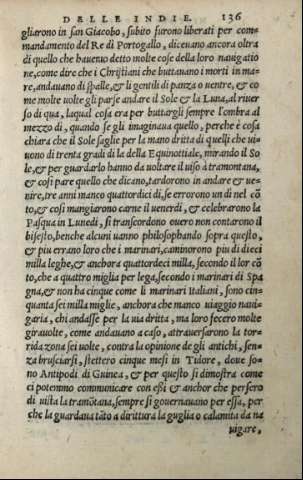 DELLE INDIE. 136
gliarono in san Giacobo, subito furono liberati per com
mandamento del Re di Portogallo, diceuano ancora oltra
di quello che haueuo detto molte cose della loro nauigatio
ne, come dire che i Christiani che buttauano i morti in ma-
re, andauano di spalle, & li gentili di panza o uentre, & co
me molte uolte gli parse andare il Sole & la Luna, al riuer
so di qua, laqual cosa era per buttargli sempre l'ombra al
mezzo di, quando se gli imaginaua quello, perche è cosa
chiara che il Sole saglie per la mano dritta di quelli che ui-
uono di trenta gradi di la della Equinottiale, mirando il So
le, & per guardarlo hanno da uoltare il uiso à tramontana,
& cosi pare quello che dicano, tardorono in andare & ue-
nire, tre anni manco quattordici di, se errorono un dì nel cõ
to, & cosi mangiorono carne il uenerdi, & celebrarono la
Pasqua in Lunedi, si transcordono ouero non contarono il
bisesto, benche alcuni uanno philosophando sopra questo,
& piu errano loro che i marinari, caminorono piu di dieci
milla leghe, & anchora quattordeci milla, secondo il lor cõ
to, che a quattro miglia per lega, secondo i marinari di Spa
gna, & non ha cinque come li marinari Italiani, sono cin-
quanta sei milla miglie, anchora che manco uiaggio naui-
garia, chi andasse per la uia dritta, ma loro fecero molte
girauolte, come andauano a caso, attrauersarono la tor-
rida zona sei uolte, contra la opinione de gli antichi, sen-
za brusciarsi, stettero cinque mesi in Tidore, doue so-
no Antipodi di Guinea, & per questo si dimostra come
ci potemmo communicare con essi & anchor che persero
di uista la tramõtana, sempre si gouernauano per essa, per
che la guardaua tãto a dirittura la guglia o calamita da na
uigare,